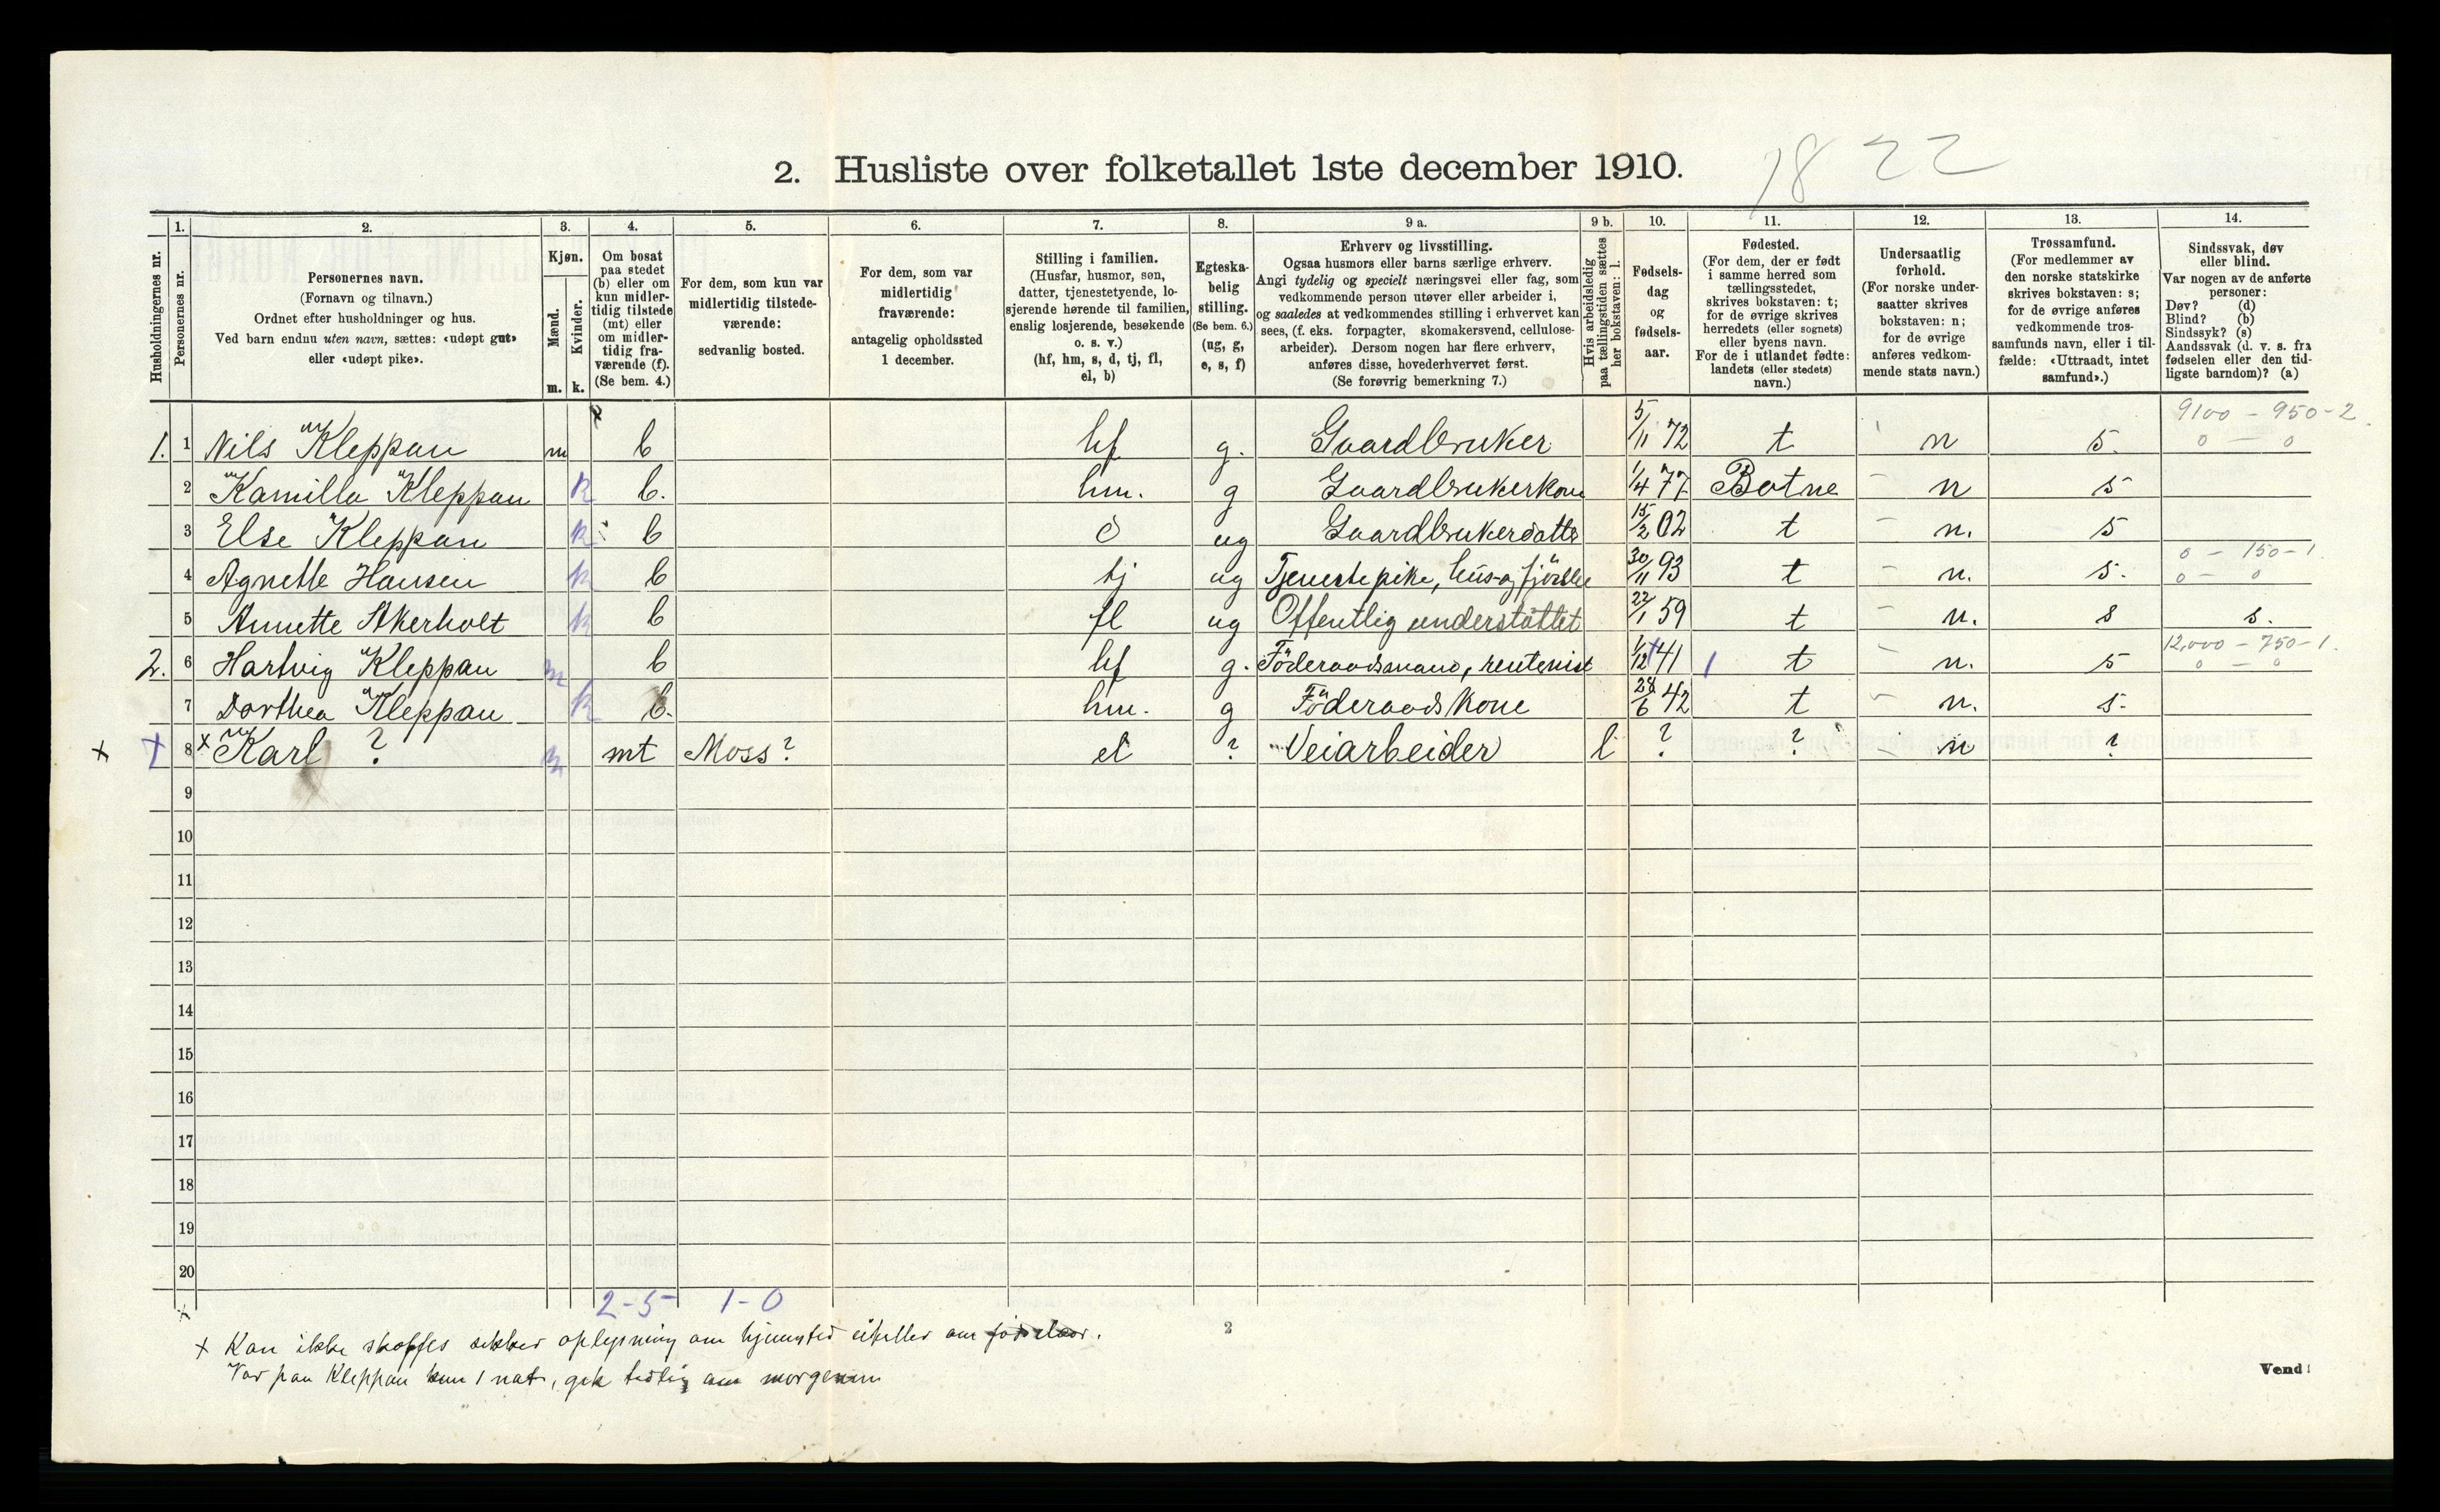 2. Husliste over folketallet 1ste december 1910.
1822
Husholdningernes nr.
1. Personernes nr.
2. Personernes navn.
(Fornavn og tilnavn.)
Ordnet efter husholdninger og hus.
Ved barn endnu uten navn, sættes: «udøpt gut»
eller «udøpt pike».
3. Kjøn.
Mænd. m.
Kvinder. k.
4. Om bosat
paa stedet
(b) eller om
kun midler-
tidig tilstede
(mt) eller
om midler-
tidig fra-
værende (f).
(Se bem. 4.)
5. For dem, som kun var
midlertidig tilstede-
værende:
sedvanlig bosted.
6. For dem, som var
midlertidig
fraværende:
antagelig opholdssted
1 december.
7. Stilling i familien.
(Husfar, husmor, søn,
datter, tjenestetyende, lo-
sjerende hørende til familien,
enslig losjerende, besøkende
o. s. v.)
(hf, hm, s, d, tj, fl,
el, b)
8. Egteska-
belig
stilling.
(Se bem. 6.)
(ug, g,
e, s, f)
9 a. Erhverv og livsstilling.
Ogsaa husmors eller barns særlige erhverv.
Angi tydelig og specielt næringsvei eller fag, som
vedkommende person utøver eller arbeider i,
og saaledes at vedkommendes stilling i erhvervet kan
sees, (f. eks. forpagter, skomakersvend, cellulose-
arbeider). Dersom nogen har flere erhverv,
anføres disse, hovederhvervet først.
(Se forøvrig bemerkning 7.)
9 b. Hvis arbeidsledig
paa tællingstiden sættes
her bokstaven: l.
10. Fødsels-
dag
og
fødsels-
aar.
11. Fødested.
(For dem, der er født
i samme herred som
tællingsstedet,
skrives bokstaven: t;
for de øvrige skrives
herredets (eller sognets)
eller byens navn.
For de i utlandet fødte:
landets (eller stedets)
navn.)
12. Undersaatlig
forhold.
(For norske under-
saatter skrives
bokstaven: n;
for de øvrige
anføres vedkom-
mende stats navn.)
13. Trossamfund.
(For medlemmer av
den norske statskirke
skrives bokstaven: s;
for de øvrige anføres
vedkommende tros-
samfunds navn, eller i til-
fælde: «Uttraadt, intet
samfund».)
14. Sindssvak, døv
eller blind.
Var nogen av de anførte
personer:
Døv? (d)
Blind? (b)
Sindssyk? (s)
Aandssvak (d. v. s. fra
fødselen eller den tid-
ligste barndom)? (a)
9100 - 950 - 2
1. 1 Nils Kleppan m b hf g. Gaardbruker 5/11 72 t n s. 0 - 0
2 Kamilla Kleppan k b. hm. g Gaardbrukerkone 1/4 77 Botne - n s
3 Else Kleppan k b d ug Gaardbrukerdatter 15/2 02 t - n. s
0 - 150 - 1.
4 Agnethe Hansen k b tj ug Tjenestepike, hus- og fjösstel 30/11 93 t - n. s. 0 - 0
5 Annette Akerholt k b fl ug Offentlig understöttet 22/1 59 t - n. s s.
12,000 - 750 - 1.
2. 6 Hartvig Kleppan m b hf g. Föderaadsmand, rentenist 1/12 41 t - n. s 0 - 0
7 Dorthea Kleppan k b. hm. g Föderaadskone 28/6 42 t - n. s.
x 8 x Karl ? m mt Moss? el ? Veiarbeider l ? ? - n ?
9
10
11
12
13
14
15
16
17
18
19
20
2-5 1-0
x Kan ikke skaffes sikker oplysning om hjemsted eiheller om fødselaar.
Var paa Kleppan kun 1 nat, gik tidlig om morgenen
2
Vend!